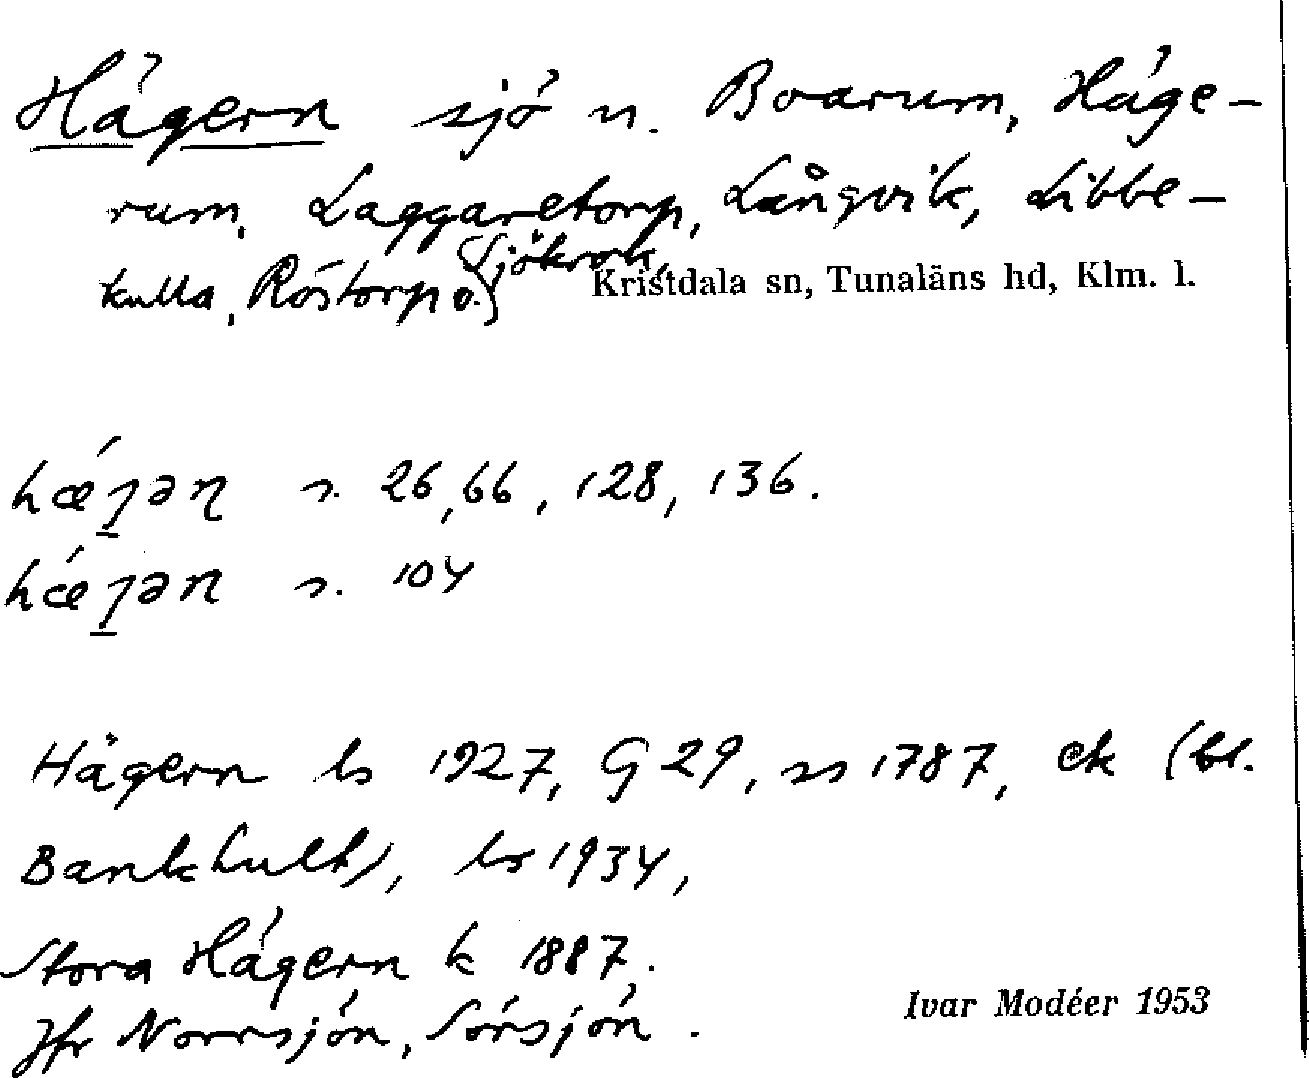 Hägern sjö n. Boarum, Häge-
rum, Laggaretorp, Långvik, Libbe-
kulla, Röstorp o. Sjökrok,
Kristdala sn, Tunaläns hd, Klm. l.
s. 26, 66, 128, 136.
s. 104
Hägern ls 1927, G 29, ss 1787, ek (bl.
Bankhult), ls 1934,
Stora Hägern k 1887.
Jfr Norrsjön, Sörsjön.
Ivar Modéer 1953